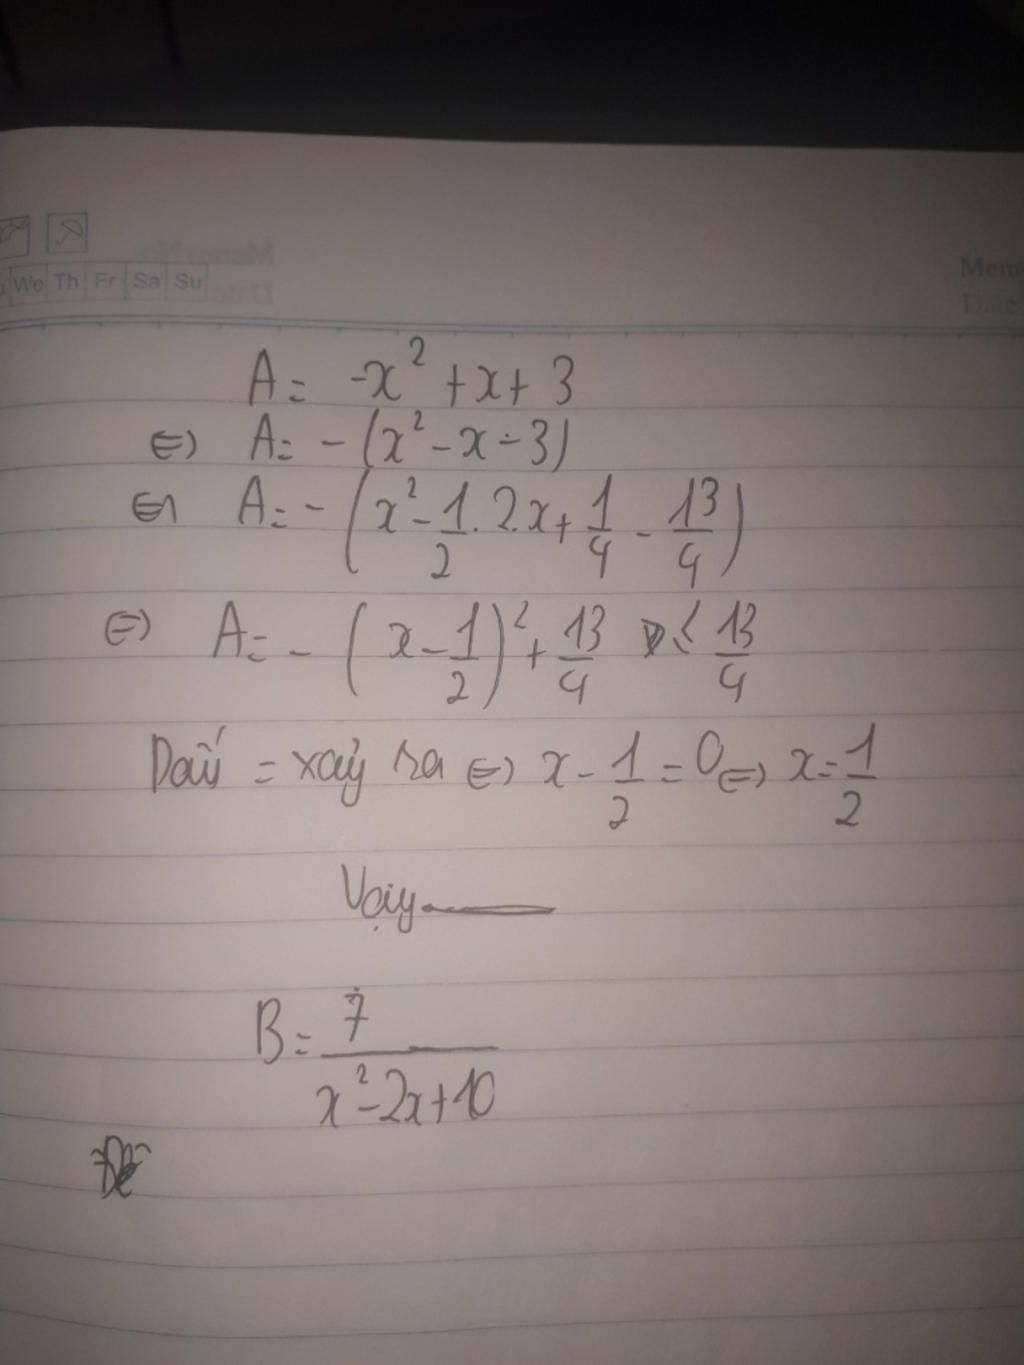 We Th Fr Sa Su
Mem
Date
A = -x² + x + 3
⇔ A = - (x² - x - 3)
⇔ A = - (x² - 1/2 . 2.x + 1/4 - 13/4)
⇔ A = - (x - 1/2)² + 13/4 ≤ 13/4
Dấu = xảy ra ⇔ x - 1/2 = 0 ⇔ x = 1/2
Vậy
B = 7/(x² - 2x + 10)